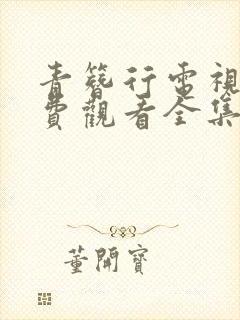 青簪行電視
費觀看全集
董開寶